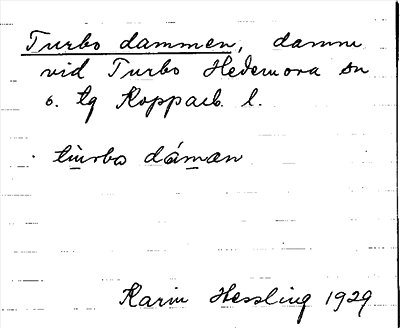 Turbo dammen, damm
vid Turbo Hedemora sn
o. tg Kopparb. l.
tùrbo dáman
Karin Hessling 1929